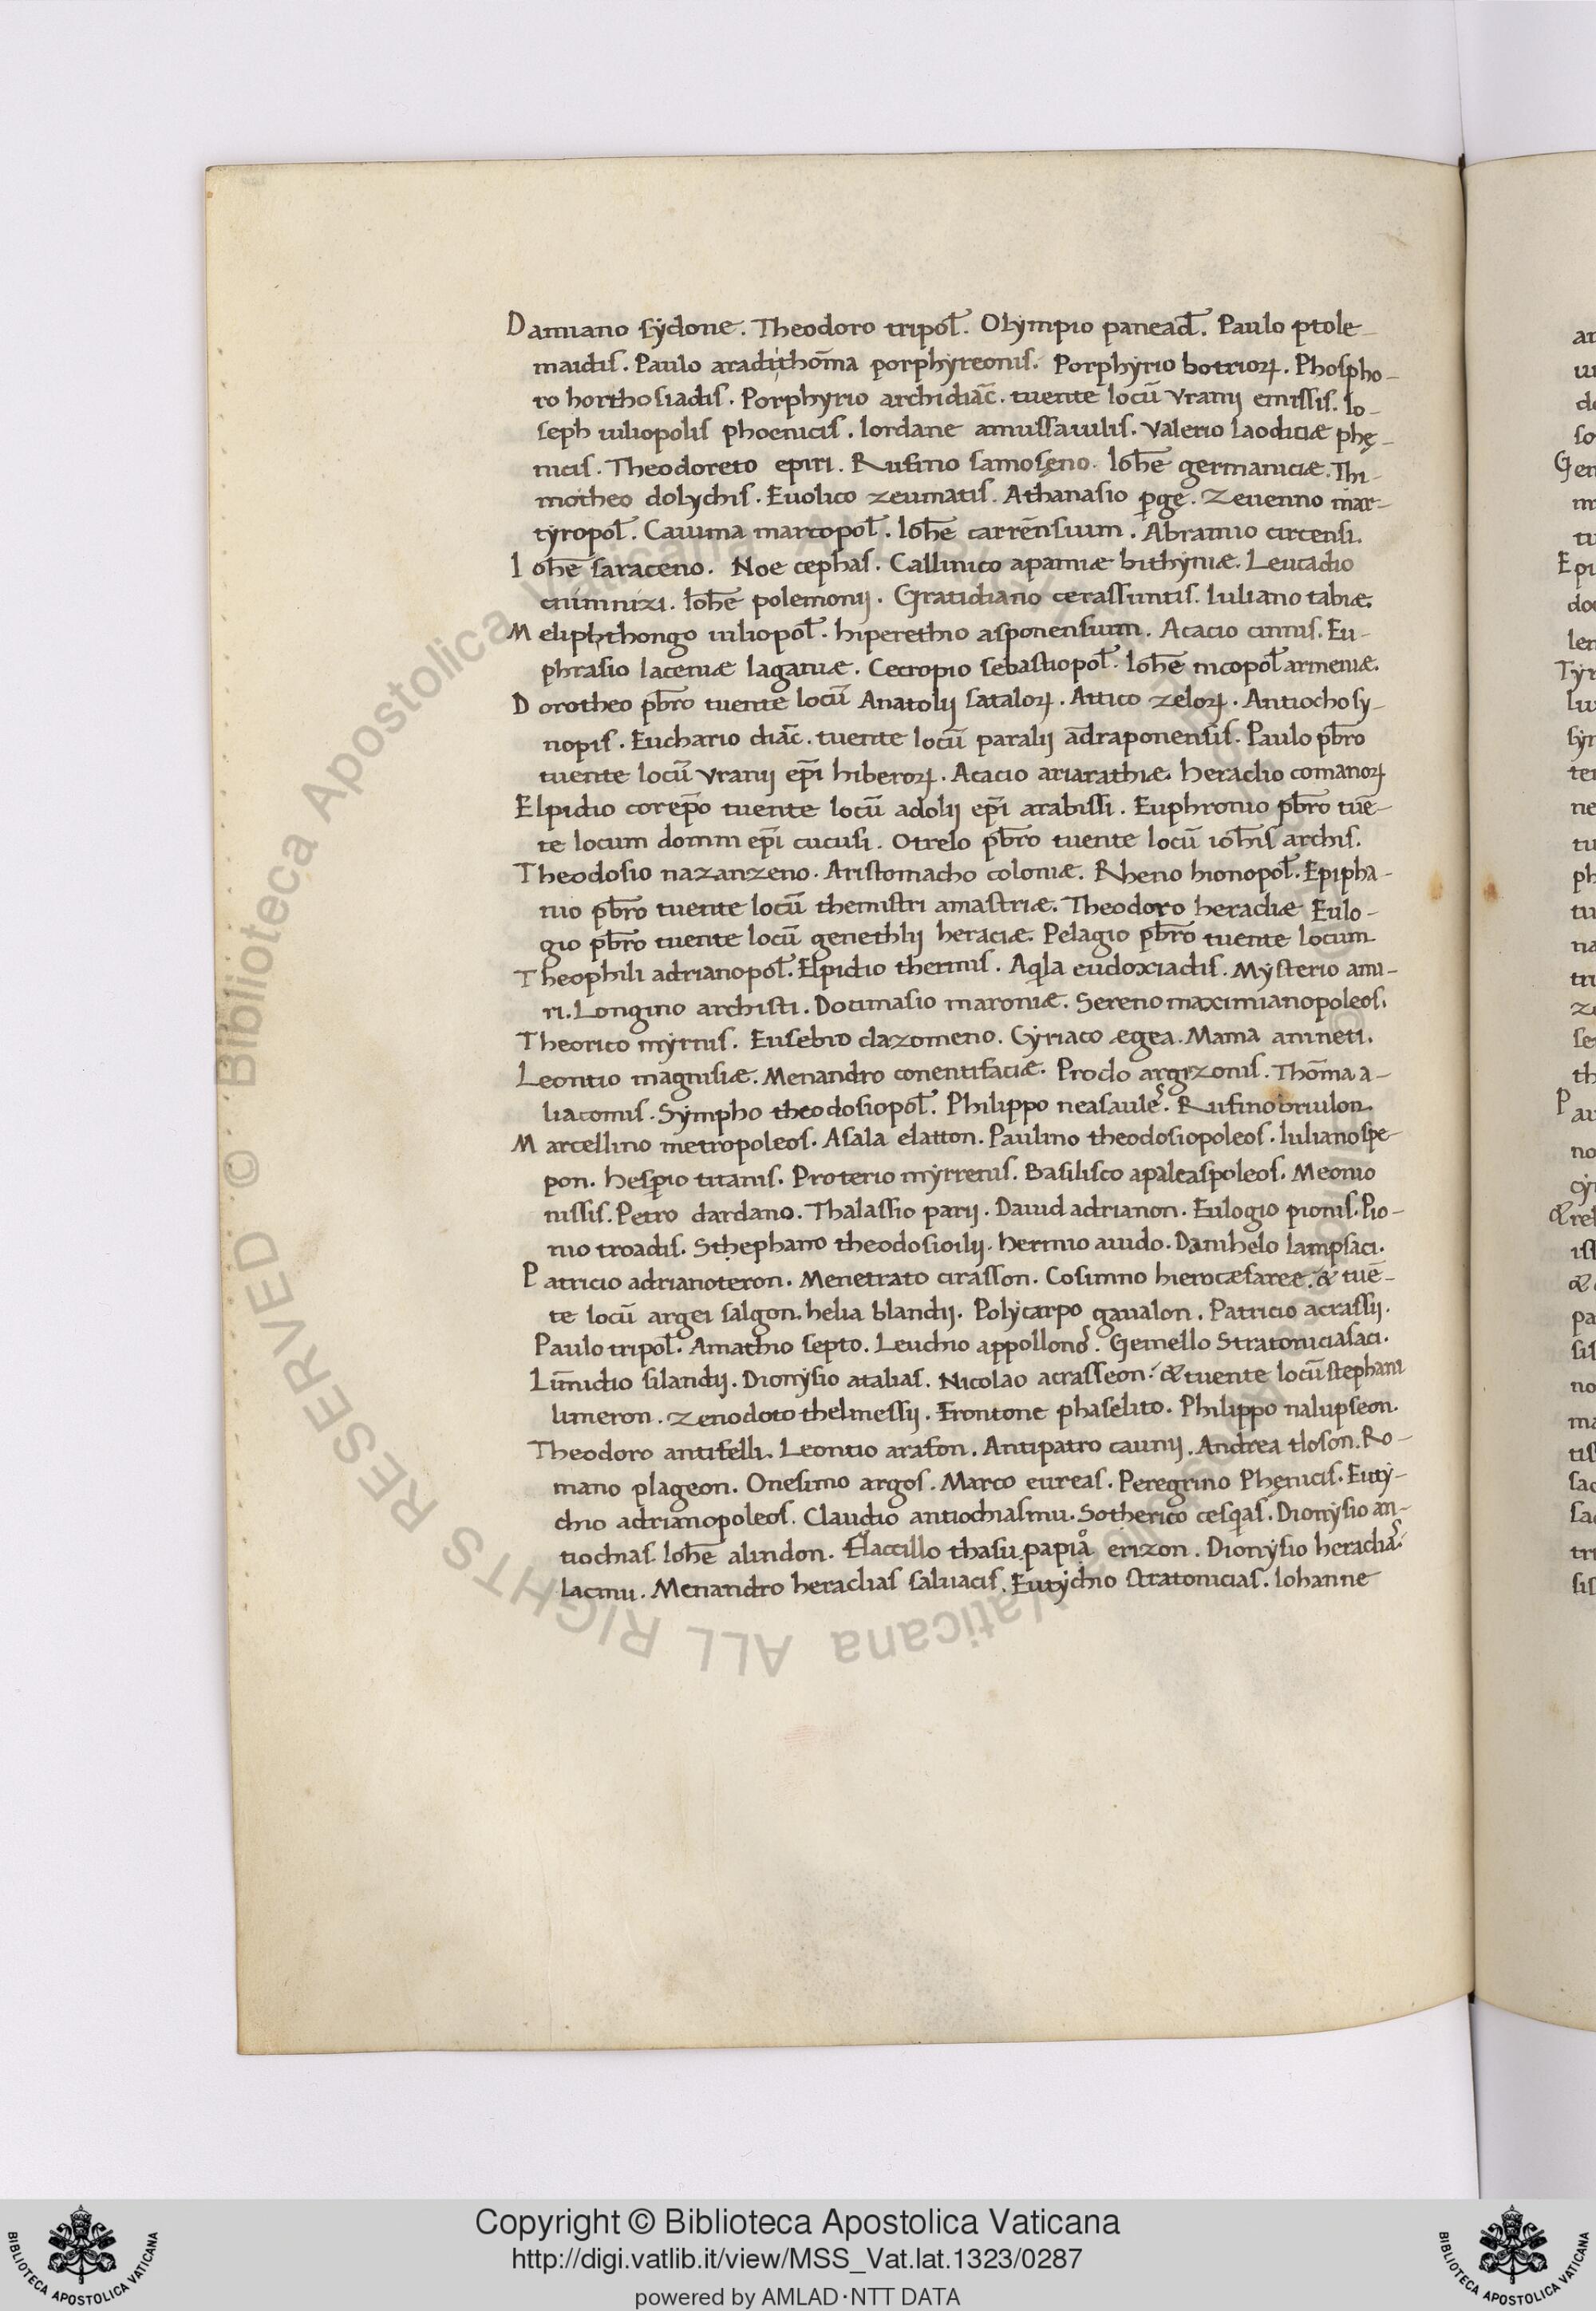 Damiano sydone. Theodoro tripol̄. Olympio panead̄. Paulo ptole-
maidis. Paulo aradi,thōma porphyreonis. Porphyrio botrioꝝ. Phospho-
ro horthosiadis. Porphyrio archidiāc. tuente locū vranij emissis. Io-
seph iuliopolis phoenicis. Iordane amissauilis. Valerio laodiciæ phę-
nicis. Theodoreto epiri. Rufino samosęno. Ioh̄e germaniciæ. Thi-
motheo dolychis. Euolico zeumatis. Athanasio ꝑgę. Zeuenno mar-
tyropol̄. Caiuma marcopol̄. Ioh̄e carrēnsium. Abramio circensi.
Ioh̄e saraceno. Noe cephas. Callinico apamiæ bithyniæ. Leucadio
cnimnizi. Ioh̄e polemonij. Gratidiano cerassuntis. Iuliano tabiæ.
Meliphthongo iuliopol̄. hiperethio asponensium. Acacio cinnis. Eu-
phrasio laceniæ laganiæ. Cecropio sebastiopol̄. Ioh̄e nicopol̄ armeniæ.
Dorotheo pb̄ro tuente locū Anatolij sataloꝝ. Attico zeloꝝ. Antiocho sy-
nopis. Euchario diāc. tuente locū paralij ādraponensis. Paulo pb̄ro
tuente locū vranij ep̄i hiberoꝝ. Acacio ariarathiæ. heraclio comanoꝝ
Elpidio corep̄o tuente locū adolij ep̄i arabissi. Euphronio pb̄ro tuē-
te locum domni ep̄i cucusi. Otrelo pb̄ro tuente locū ioh̄is archis.
Theodosio nazanzeno. Aristomacho coloniæ. Rheno hionopol̄. Epipha-
nio pb̄ro tuente locū themistri amastriæ. Theodoro heracliæ Eulo-
gio pb̄ro tuente locū genethlij heraciæ. Pelagio pb̄ro tuente locum
Theophili adrianopol̄. Elpidio thermis. Aqla eudoxiadis. Mysterio ami-
ri. Longino archisti. Docimasio maroniæ. Sereno maximianopoleos.
Theorico myrnis. Eusebio clazomeno. Cyriaco ægea. Mama anineti.
Leontio magnisiæ. Menandro conentifaciæ. Proclo argizonis. Thōma a-
liacomis. Sympho theodosiopol̄. Philippo neasaulęs. Rufino briulon.
Marcellino metropoleos. Asala elatton. Paulino theodosiopoleos. Iuliano spe-
pon. hesꝑio titanis. Proterio myrrenis. Basilisco apaleaspoleos. Meonio
nissis. Petro dardano. Thalassio parij. Dauid adrianon. Eulogio pionis. Pio-
nio troadis. Sthephano theodosioilij. hermio auido. Danihelo lampsaci.
Patricio adrianoteron. Menetrato cirasson. Cosinno hierocæsareæ. & tuē-
te locū argei salgon. helia blandij. Polycarpo gaualon. Patricio acrassij.
Paulo tripol̄. Amathio septo. Leuchio appollond. Gemello Stratoniciasaci.
Lim̄idio silandij. Dionysio atalias. Nicolao acrasseon. & tuente locū stephani
limeron. Zenodoto thelmessij. Frontone phaselito. Philippo nalupseon.
Theodoro antifelli. Leontio arafon. Antipatro caunij. Andrea tloson. Ro-
mano plageon. Onesimo argos. Marco eureas. Peregrino Phęnicis. Euty-
chio adrianopoleos. Claudio antiochiasmu. Sotherico cesqas. Dionysio an-
tiochias. Ioh̄e alindon. Flaccillo thasu. papiå erizon. Dionysio heraclias
lacmu. Menandro heraclias saluacis. Eutychio stratonicias. Iohanne
© Biblioteca Apostolica Vaticana ALL RIGHTS RESERVED
Copyright © Biblioteca Apostolica Vaticana
http://digi.vatlib.it/view/MSS_Vat.lat.1323/0287
powered by AMLAD·NTT DATA
BIBLIOTECA APOSTOLICA VATICANA
BIBLIOTECA APOSTOLICA VATICANA